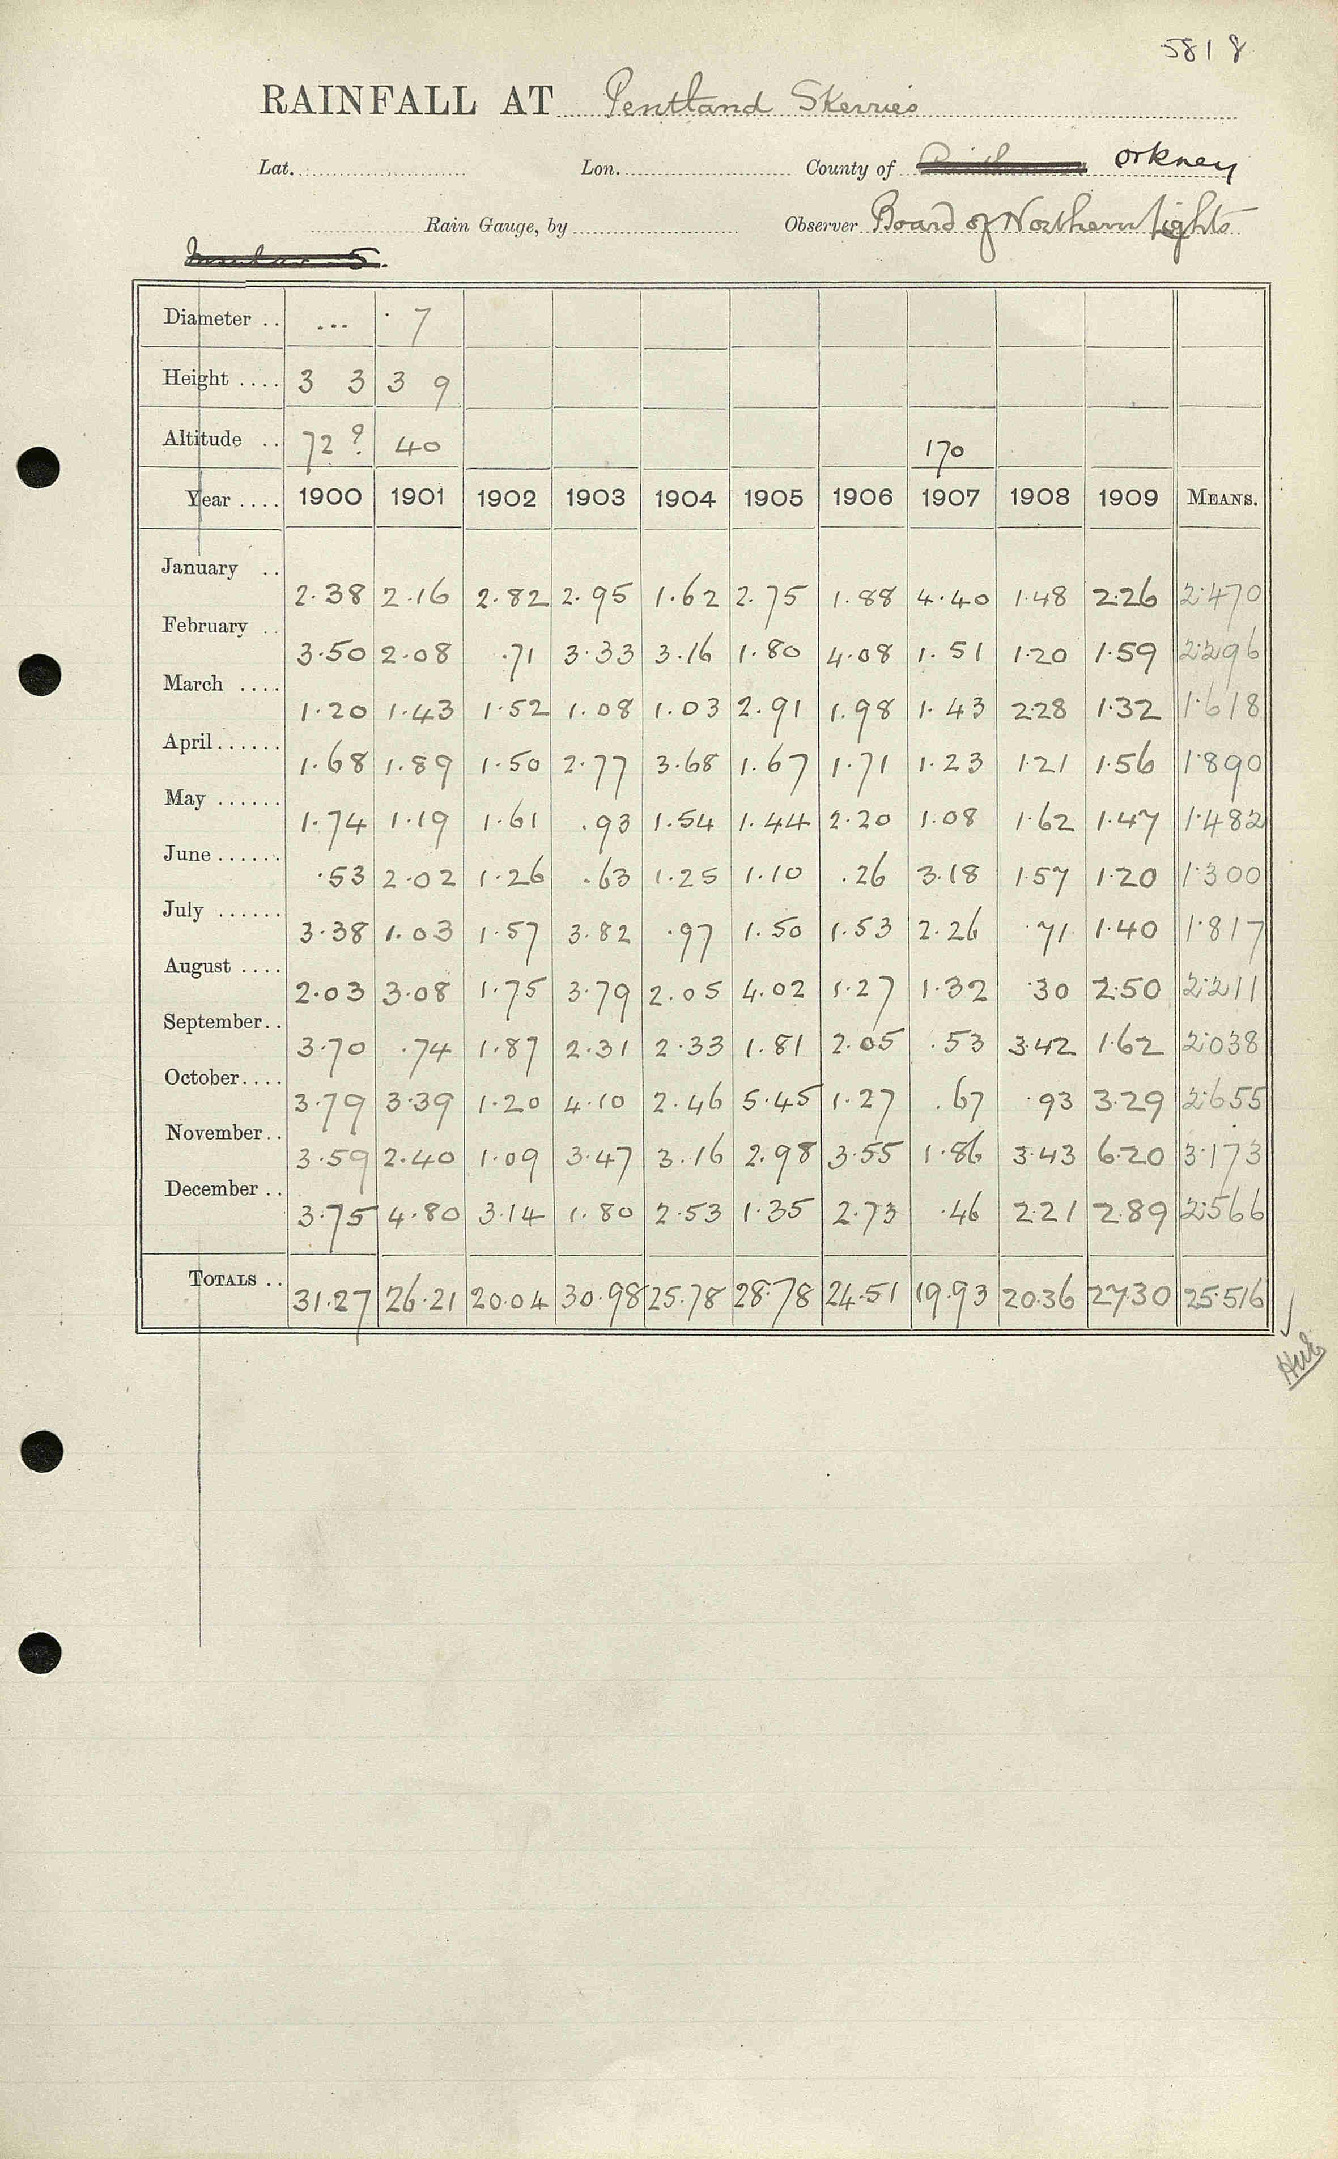 5818
RAINFALL AT Pentland Skerries
Lat. Lon. County of Orkney
Rain Gauge, by Observer Board of Northern Lights
Diameter .. ... · 7
Height .... 3 3 3 9
Altitude .. 72? 40 170
Year .... 1900 1901 1902 1903 1904 1905 1906 1907 1908 1909 MEANS.
January .. 2.38 2.16 2.82 2.95 1.62 2.75 1.88 4.40 1.48 2.26 2.470
February .. 3.50 2.08 .71 3.33 3.16 1.80 4.08 1.51 1.20 1.59 2.296
March .... 1.20 1.43 1.52 1.08 1.03 2.91 1.98 1.43 2.28 1.32 1.618
April ...... 1.68 1.89 1.50 2.77 3.68 1.67 1.71 1.23 1.21 1.56 1.890
May ...... 1.74 1.19 1.61 .93 1.54 1.44 2.20 1.08 1.62 1.47 1.482
June ...... .53 2.02 1.26 .63 1.25 1.10 .26 3.18 1.57 1.20 1.300
July ...... 3.38 1.03 1.57 3.82 .97 1.50 1.53 2.26 .71 1.40 1.817
August .... 2.03 3.08 1.75 3.79 2.05 4.02 1.27 1.32 .30 2.50 2.211
September.. 3.70 .74 1.87 2.31 2.33 1.81 2.05 .53 3.42 1.62 2.038
October.... 3.79 3.39 1.20 4.10 2.46 5.45 1.27 .67 .93 3.29 2.655
November.. 3.59 2.40 1.09 3.47 3.16 2.98 3.55 1.86 3.43 6.20 3.173
December .. 3.75 4.80 3.14 1.80 2.53 1.35 2.73 .46 2.21 2.89 2.566
TOTALS .. 31.27 26.21 20.04 30.98 25.78 28.78 24.51 19.93 20.36 27.30 25.516